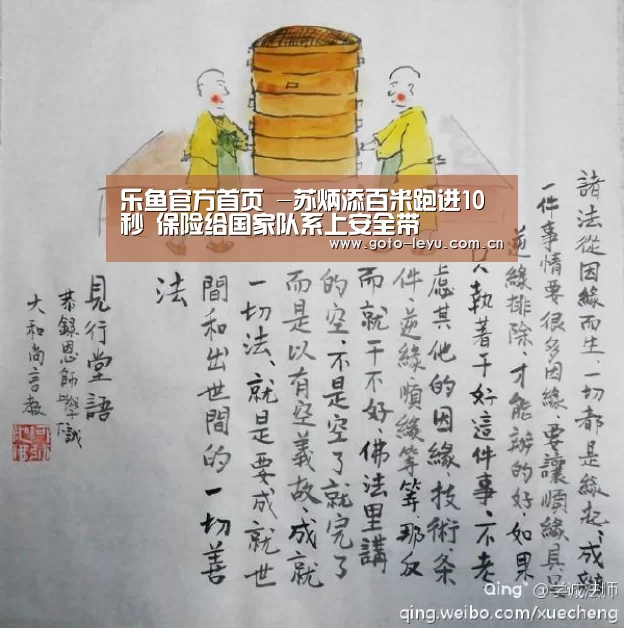 乐鱼官方首页 -苏炳添百米跑进10
秒 保险给国家队系上安全带
www.goto-leyu.com.cn
諸法從因緣而生、一切都是緣起、成辦
一件事情要很多因緣、要讓順緣具足
逆緣排除、才能辦的好、如果
只執著于好這件事、不考
慮其他的因緣、技術、条
件、逆緣、順緣等等、那反
而就干不好、佛法里講
的空、不是空了就完了
而是以有空義故、成就
一切法、就是要成就世
間和出世間的一切善
法
見行堂語
恭錄恩師學誠
大和尚言教
Qing @学诚法师
qing.weibo.com/xuecheng